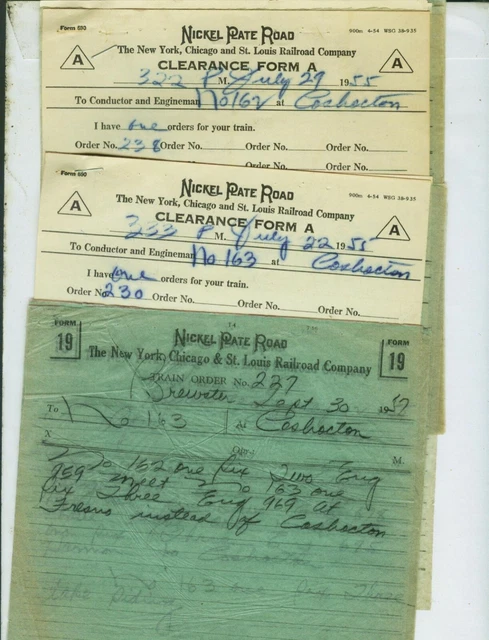 Form 890
NICKEL PLATE ROAD
900m 4-54 WSG 38-935
The New York, Chicago and St. Louis Railroad Company
A CLEARANCE FORM A A
322 P M. July 29 1955
To Conductor and Engineman No 162 at Coshocton
I have one orders for your train.
Order No. 238 Order No. Order No. Order No.
Order No. Order No.
Form 890
NICKEL PLATE ROAD
900m 4-54 WSG 38-935
The New York, Chicago and St. Louis Railroad Company
A CLEARANCE FORM A A
333 P M. July 22 1955
To Conductor and Engineman No 163 at Coshocton
I have one orders for your train.
Order No. 230 Order No. Order No. Order No.
FORM 19
NICKEL PLATE ROAD
FORM 19
The New York, Chicago & St. Louis Railroad Company
TRAIN ORDER No. 227
Brewster Sept 30 1957
To No 163 At Coshocton
X Opr. M.
No 162 one six two Eng
959 meet No 163 one
six three Eng 969 at
Fresno instead of Coshocton
to Coshocton
163 one six three
take siding